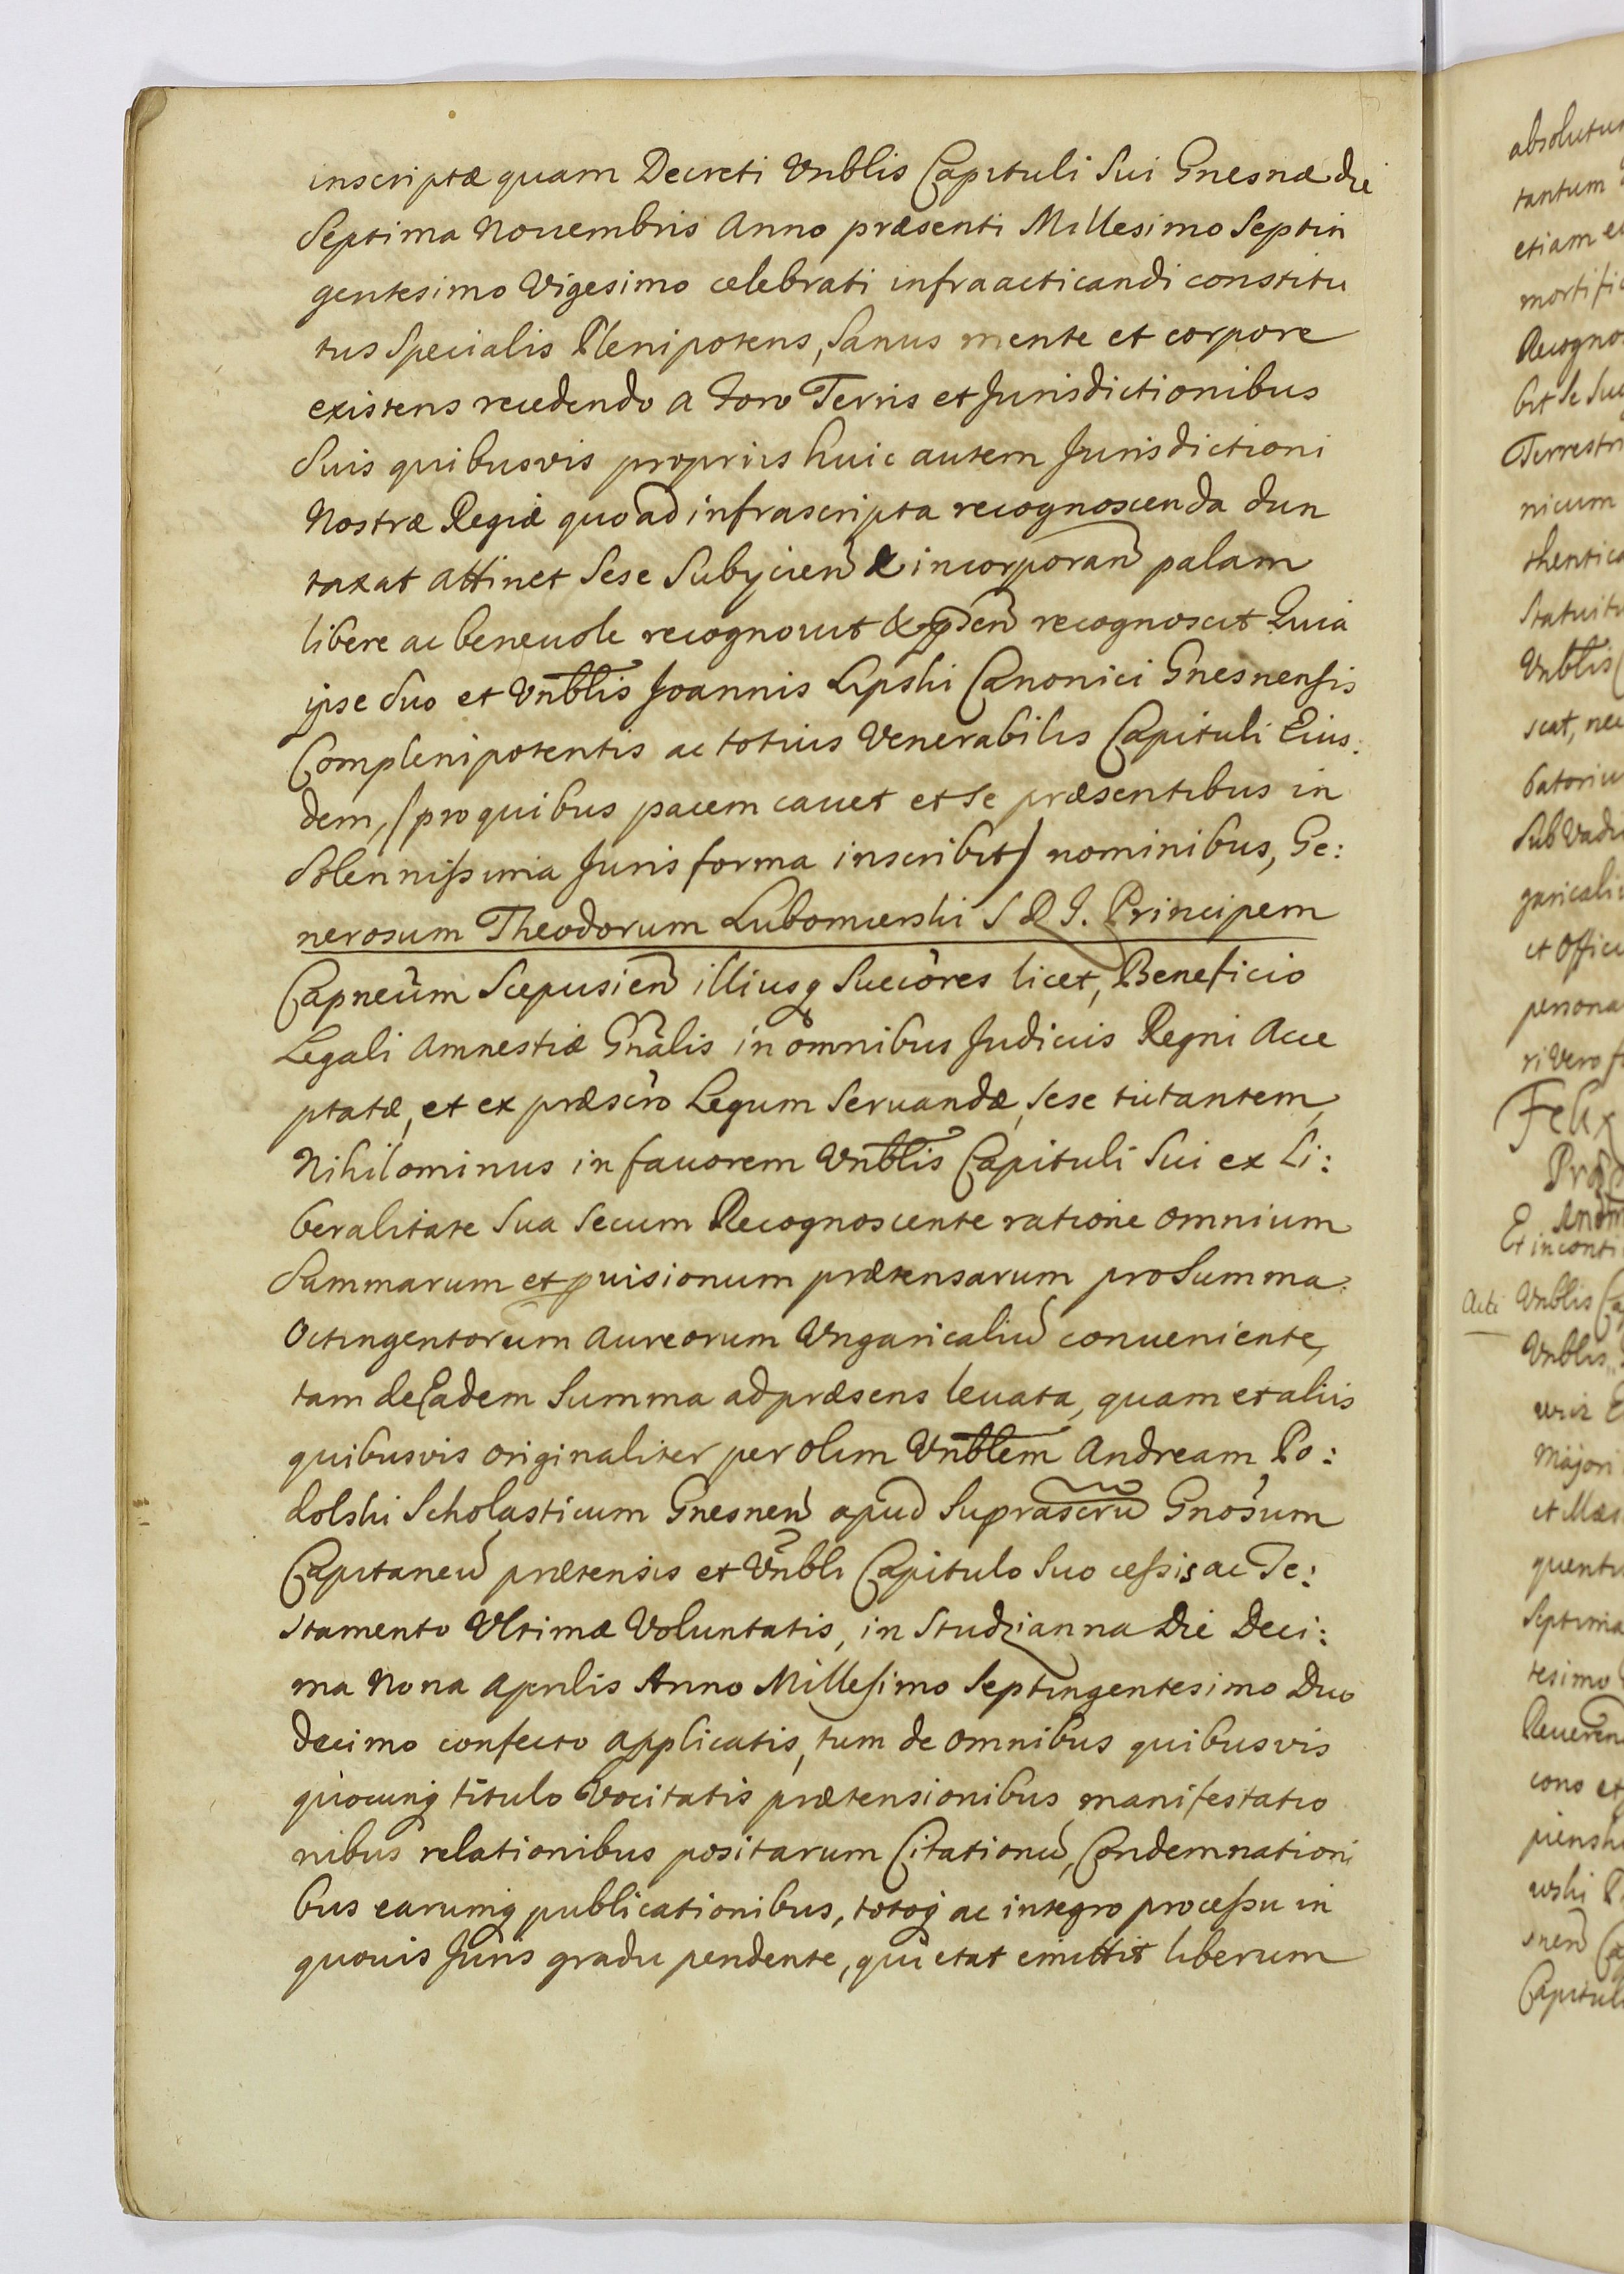 inscriptæ quam Decreti Vnblis Capituli Sui Gnesnæ die
Septima Nouembris Anno præsenti Millesimo Septin
gentesimo Vigesimo celebrati infraacticandi constitu
tus Specialis Plenipotens, Sanus mente et corpore
existens recedendo a Foro Terris et Jurisdictionibus
Suis quibusvis proprijs huic autem Jurisdictioni
Nostræ Regiæ quoad infrascripta recognoscenda dun
taxat attinet Sese Subijcien̄ & incorporan̄ palam
libere ac beneuole recognouit & recognoscit Quia
ipse Suo et Vnblis Joannis Lipski Canonici Gnesnensis
Complenipotentis ac totius Venerabilis Capituli Eius:
dem, /pro quibus pacem cauet et Se præsentibus in
Solennissima Juris forma inscribit/ nominibus, Ge:
nerosum Theodorum Lubomirski S R I. Principem
Capneum Scepusien̄ illiusq Succores licet, Beneficio
Legali Amnestiæ Gnalis in omnibus Judicijs Regni Acce
ptatæ, et ex præscro Legum Seruandæ, Sese tutantem,
Nihilominus in fauorem Vnblis Capituli Sui ex Li:
beralitate Sua Secum Recognoscente ratione omnium
Summarum et puisionum prætensarum pro Summa
Octingentorum Aureorum Vngaricaliū conueniente,
tam de Eadem Summa ad præsens leuata, quam et alijs
quibusvis originaliter per olim Vnblem Andream Po:
dolski Scholasticum Gnesnen̄ apud Suprascrū Gnosum
Capitaneū prætensis et Vnbli Capitulo Suo cessis ac Te:
stamento Vltimæ Voluntatis, in Studzianna Die Deci:
ma Nona Aprilis Anno Millesimo Septingentesimo Duo
decimo confecto applicatis, tum de omnibus quibusvis
quocunq titulo Vocitatis prætensionibus manifestatio
nibus relationibus positarum Citationū, Condemnationi
bus earumq publicationibus, totoq ac integro processu in
quouis Juris gradu pendente, quietat emittit liberum
absolutu
tantum
etiam
mortific
Recogno
bit Se Su
Terrestri
nicum
thentica
Statuit
Vnblis
scat, nec
batoriu
Sub Vadi
garicali
et Offici
persona
ri Vero
Felix
Et incont
Acti Vnblis
Vnblis
Majori
quent
Septima
tesimo
Reueren
cono et
Capituli